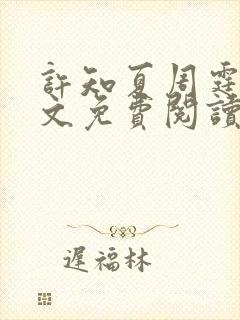 許知夏周霆
文免費閱讀
遲福林